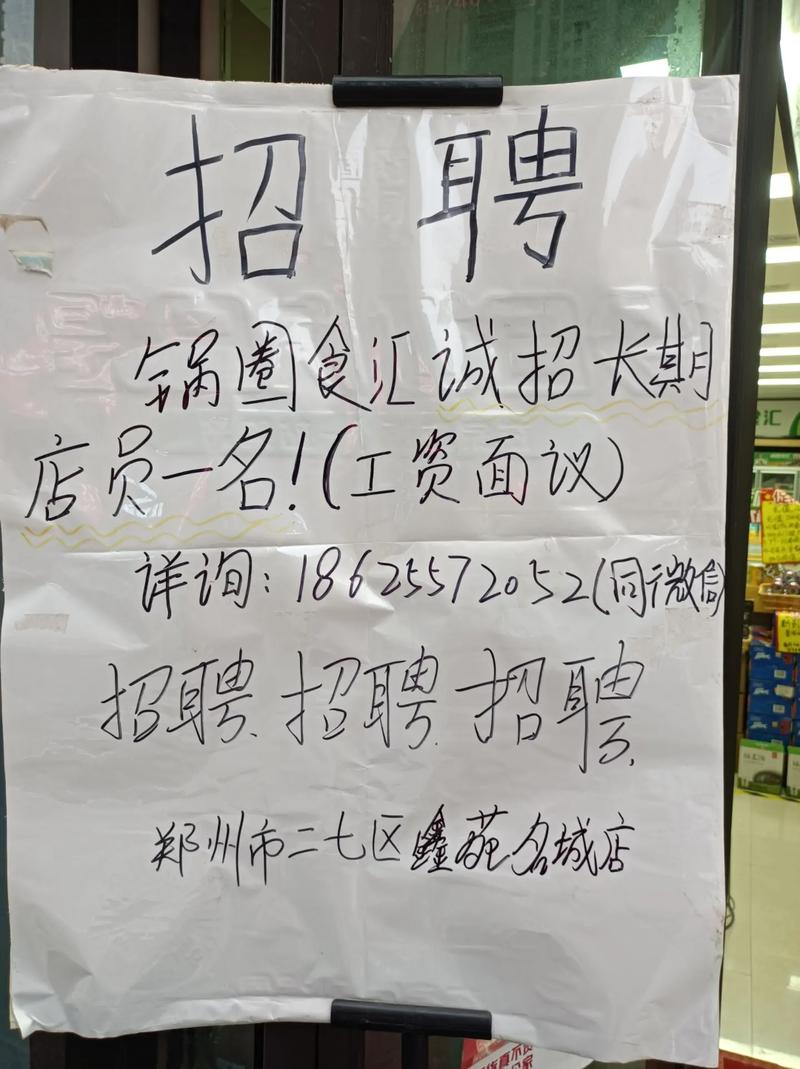 招聘
锅圈食汇诚招长期
店员一名!(工资面议)
详询:18625572052(同微信)
招聘.招聘.招聘.
郑州市二七区鑫苑名城店
汇